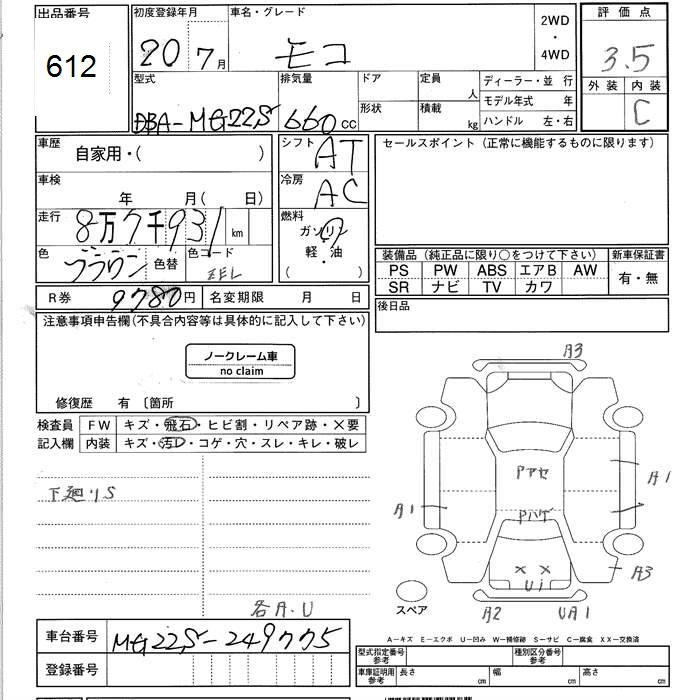 出品番号
612
初度登録年月
20 7月
車名・グレード
モコ
2WD
・
4WD
評価点
3.5
外装 内装
C
型式
DBA-MG22S
排気量
660 cc
ドア
形状
定員
人
積載
kg
ディーラー・並 行
モデル年式 年
ハンドル 左・右
車歴
自家用・( )
シフト
AT
セールスポイント(正常に機能するものに限ります)
車検
年 月( 日)
冷房
AC
走行
8万7千931 km
燃料
ガソリン
軽・油
( )
色
ブラウン 色替
色コード
ZEL
装備品(純正品に限り○をつけて下さい) 新車保証書
PS PW ABS エアB AW
SR ナビ TV カワ
有・無
R券 9780円 名変期限 月 日
後日品
注意事項申告欄(不具合内容等は具体的に記入して下さい)
ノークレーム車
no claim
修復歴 有〔箇所 〕
検査員 FW キズ・飛石・ヒビ割・リペア跡・×要
記入欄 内装 キズ・汚レ・コゲ・穴・スレ・キレ・破レ
下廻りS
各A.U
A3
Pアセ
A1
A1
Pハゲ
× ×
Ui
A3
スペア
A2 UA1
車台番号 MG22S-249775
登録番号
A-キズ E-エクボ U-凹み W-補修跡 S-サビ C-腐食 XX-交換済
型式指定番号
参考
種別区分番号
参考
車庫証明用
参考
長さ cm 幅 cm 高さ cm